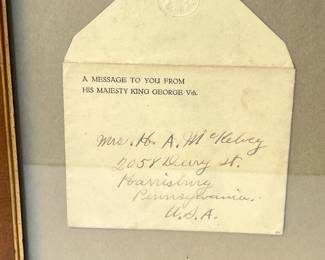 A MESSAGE TO YOU FROM
HIS MAJESTY KING GEORGE Vth.
Mrs. H. A. McKelvey
2058 Derry St.
Harrisburg
Pennsylvania.
U.S.A.